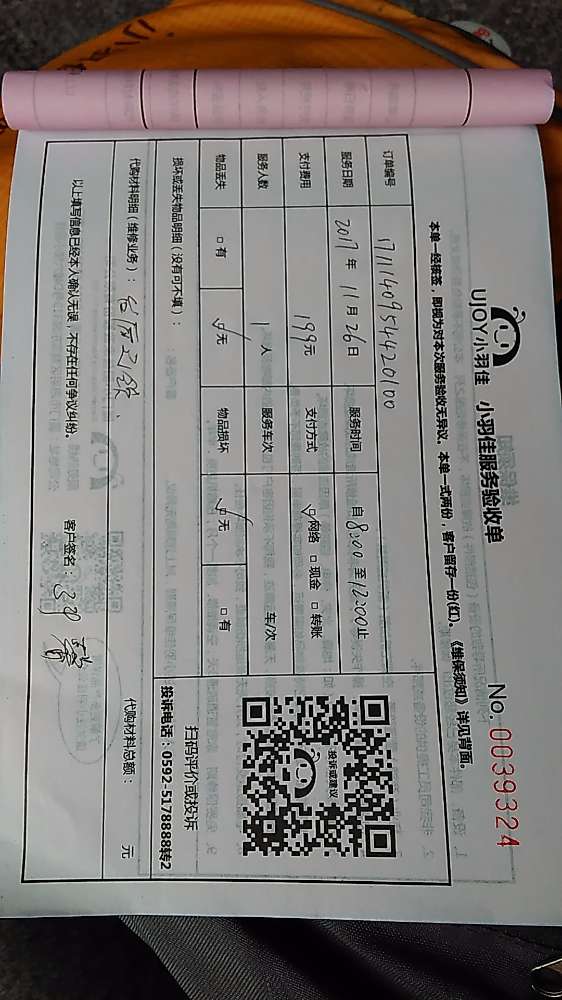 UJOY小羽佳 小羽佳服务验收单
No. 0039324
本单一经核签，即视为对本次服务验收无异议。本单一式两份，客户留存一份(红)。《维保须知》详见背面。
订单编号 1711140954420100
服务日期 2017 年 11 月 26 日 服务时间 自 8:00 至 12:00 止
支付费用 199 元 支付方式 ☑网络 □现金 □转账
服务人数 1 人 服务车次 车/次
物品丢失 □有 ☑无 物品损坏 ☑无 □有
投诉或建议
扫码评价或投诉
投诉电话：0592-5178888转2
损坏或丢失物品明细（没有可不填）：
代购材料明细（维修业务）： 代购材料总额： 元
以上填写信息已经本人确认无误，不存在任何争议纠纷。 客户签名：